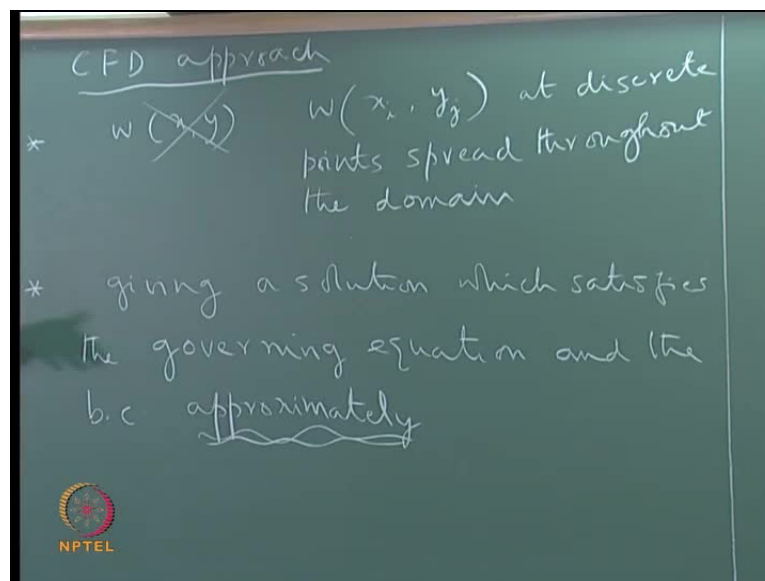 CFD approach
* w (x, y) w(x_i, y_j) at discrete
points spread throughout
the domain
* giving a solution which satisfies
the governing equation and the
b.c approximately
NPTEL